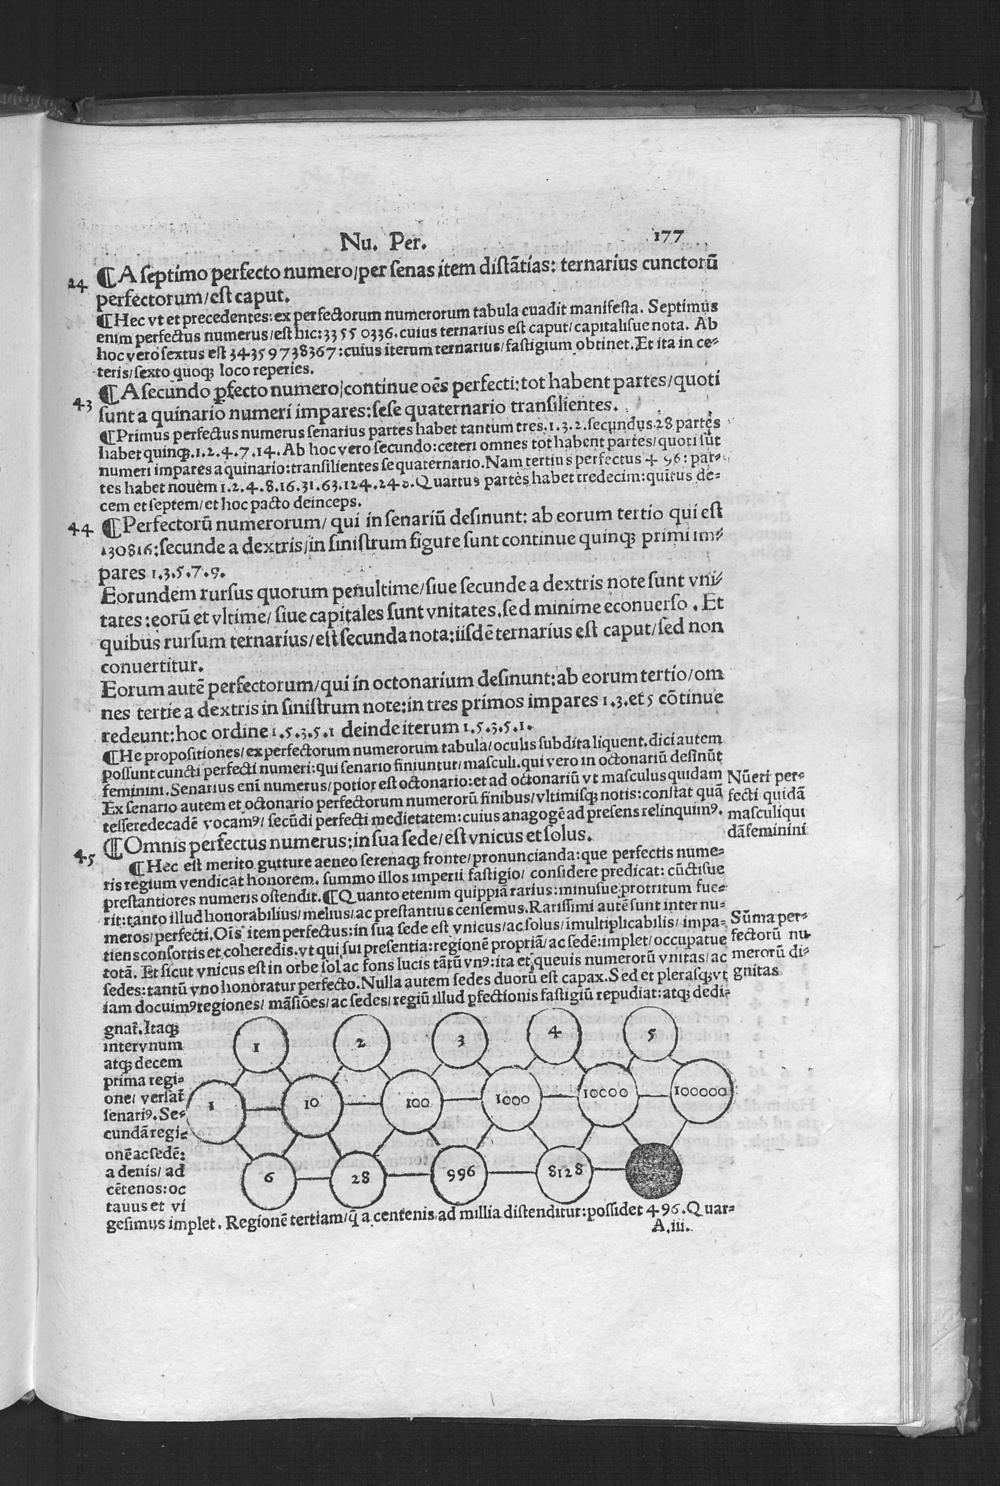 Nu. Per. 177
24 ¶A septimo perfecto numero/per senas item distãtias: ternarius cunctorũ
perfectorum/est caput.
¶Hec vt et precedentes: ex perfectorum numerorum tabula euadit manifesta. Septimus
enim perfectus numerus/est hic: 33550336. cuius ternarius est caput/capitalisue nota. Ab
hoc vero sextus est 34359738367: cuius iterum ternarius/fastigium obtinet. Et ita in ce⸗
teris/sexto quoqꝫ loco reperies.
43 ¶A secundo ꝑfecto numero/continue oẽs perfecti: tot habent partes/quoti
sunt a quinario numeri impares: sese quaternario transilientes.
¶Primus perfectus numerus senarius partes habet tantum tres. 1.3.2. secundus. 28 partes
habet quinqꝫ. 1.2.4.7.14. Ab hoc vero secundo: ceteri omnes tot habent partes/quoti sũt
numeri impares a quinario: transilientes se quaternario. Nam tertius perfectus 496: par⸗
tes habet nouem 1.2.4.8.16.31.63.124.240. Quartus partes habet tredecim: quitus de⸗
cem et septem/et hoc pacto deinceps.
44 ¶Perfectorũ numerorum/ qui in senariũ desinunt: ab eorum tertio qui est
130816: secunde a dextris/in sinistrum figure sunt continue quinqꝫ primi im⸗
pares 1.3.5.7.9.
Eorundem rursus quorum penultime/siue secunde a dextris note sunt vni⸗
tates: eorũ et vltime/ siue capitales sunt vnitates. sed minime econuerso. Et
quibus rursum ternarius/est secunda nota: iisdẽ ternarius est caput/sed non
conuertitur.
Eorum autẽ perfectorum/qui in octonarium desinunt: ab eorum tertio/om
nes tertie a dextris in sinistrum note: in tres primos impares 1.3. et 5 cõtinue
redeunt: hoc ordine 1.5.3.5.1 deinde iterum 1.5.3.5.1.
¶He propositiones/ex perfectorum numerorum tabula/oculis subdita liquent. dici autem
possunt cuncti perfecti numeri: qui senario finiuntur/masculi. qui vero in octonariũ desinũt
feminini. Senarius eni numerus/potior est octonario: et ad octonariũ vt masculus quidam
Ex senario autem et octonario perfectorum numerorũ finibus/vltimisqꝫ notis: constat quã
tesseredecadẽ vocamꝰ/ secũdi perfecti medietatem: cuius anagogẽ ad presens relinquimꝰ.
Nũeri per⸗
fecti quidã
masculi qui
dã feminini
45 ¶Omnis perfectus numerus: in sua sede/est vnicus et solus.
¶Hec est merito gutture aeneo serenaqꝫ fronte/pronuncianda: que perfectis nume⸗
ris regium vendicat honorem. summo illos imperii fastigio/ considere predicat: cũctisue
prestantiores numeris ostendit. ¶Quanto etenim quippiã rarius: minusue protritum fue⸗
rit: tanto illud honorabilius/melius/ac prestantius censemus. Rarissimi autẽ sunt inter nu⸗
meros/perfecti. Oĩs item perfectus: in sua sede est vnicus/ac solus/imultiplicabilis/ impa⸗
tiens consortis et coheredis. vt qui sui presentia: regionẽ propriã/ ac sedẽ: implet/occupatue
totã. Et sicut vnicus est in orbe sol ac fons lucis tãtũ vnꝰ: ita et queuis numerorũ vnitas/ac
sedes: tantũ vno honoratur perfecto. Nulla autem sedes duorũ est capax. Sed et plerasqꝫ vt
iam docuimꝰ regiones/ mãsiões/ac sedes/ regiũ illud ꝑfectionis fastigiũ repudiat: atqꝫ dedi⸗
Sũma per⸗
fectorũ nu⸗
merorũ di⸗
gnitas
gnat̃. Itaqꝫ
inter vnum
atqꝫ decem
prima regi⸗
one/ versat̃
senariꝰ. Se⸗
cundã regi⸗
onẽ ac sedẽ:
a denis/ ad
cẽtenos: oc
tauus et vi
1 2 3 4 5
1 10 100 1000 10000 100000
6 28 996 8128
gesimus implet. Regionẽ tertiam/q̃ a centenis ad millia distenditur: possidet 496. Quar⸗
A.iii.